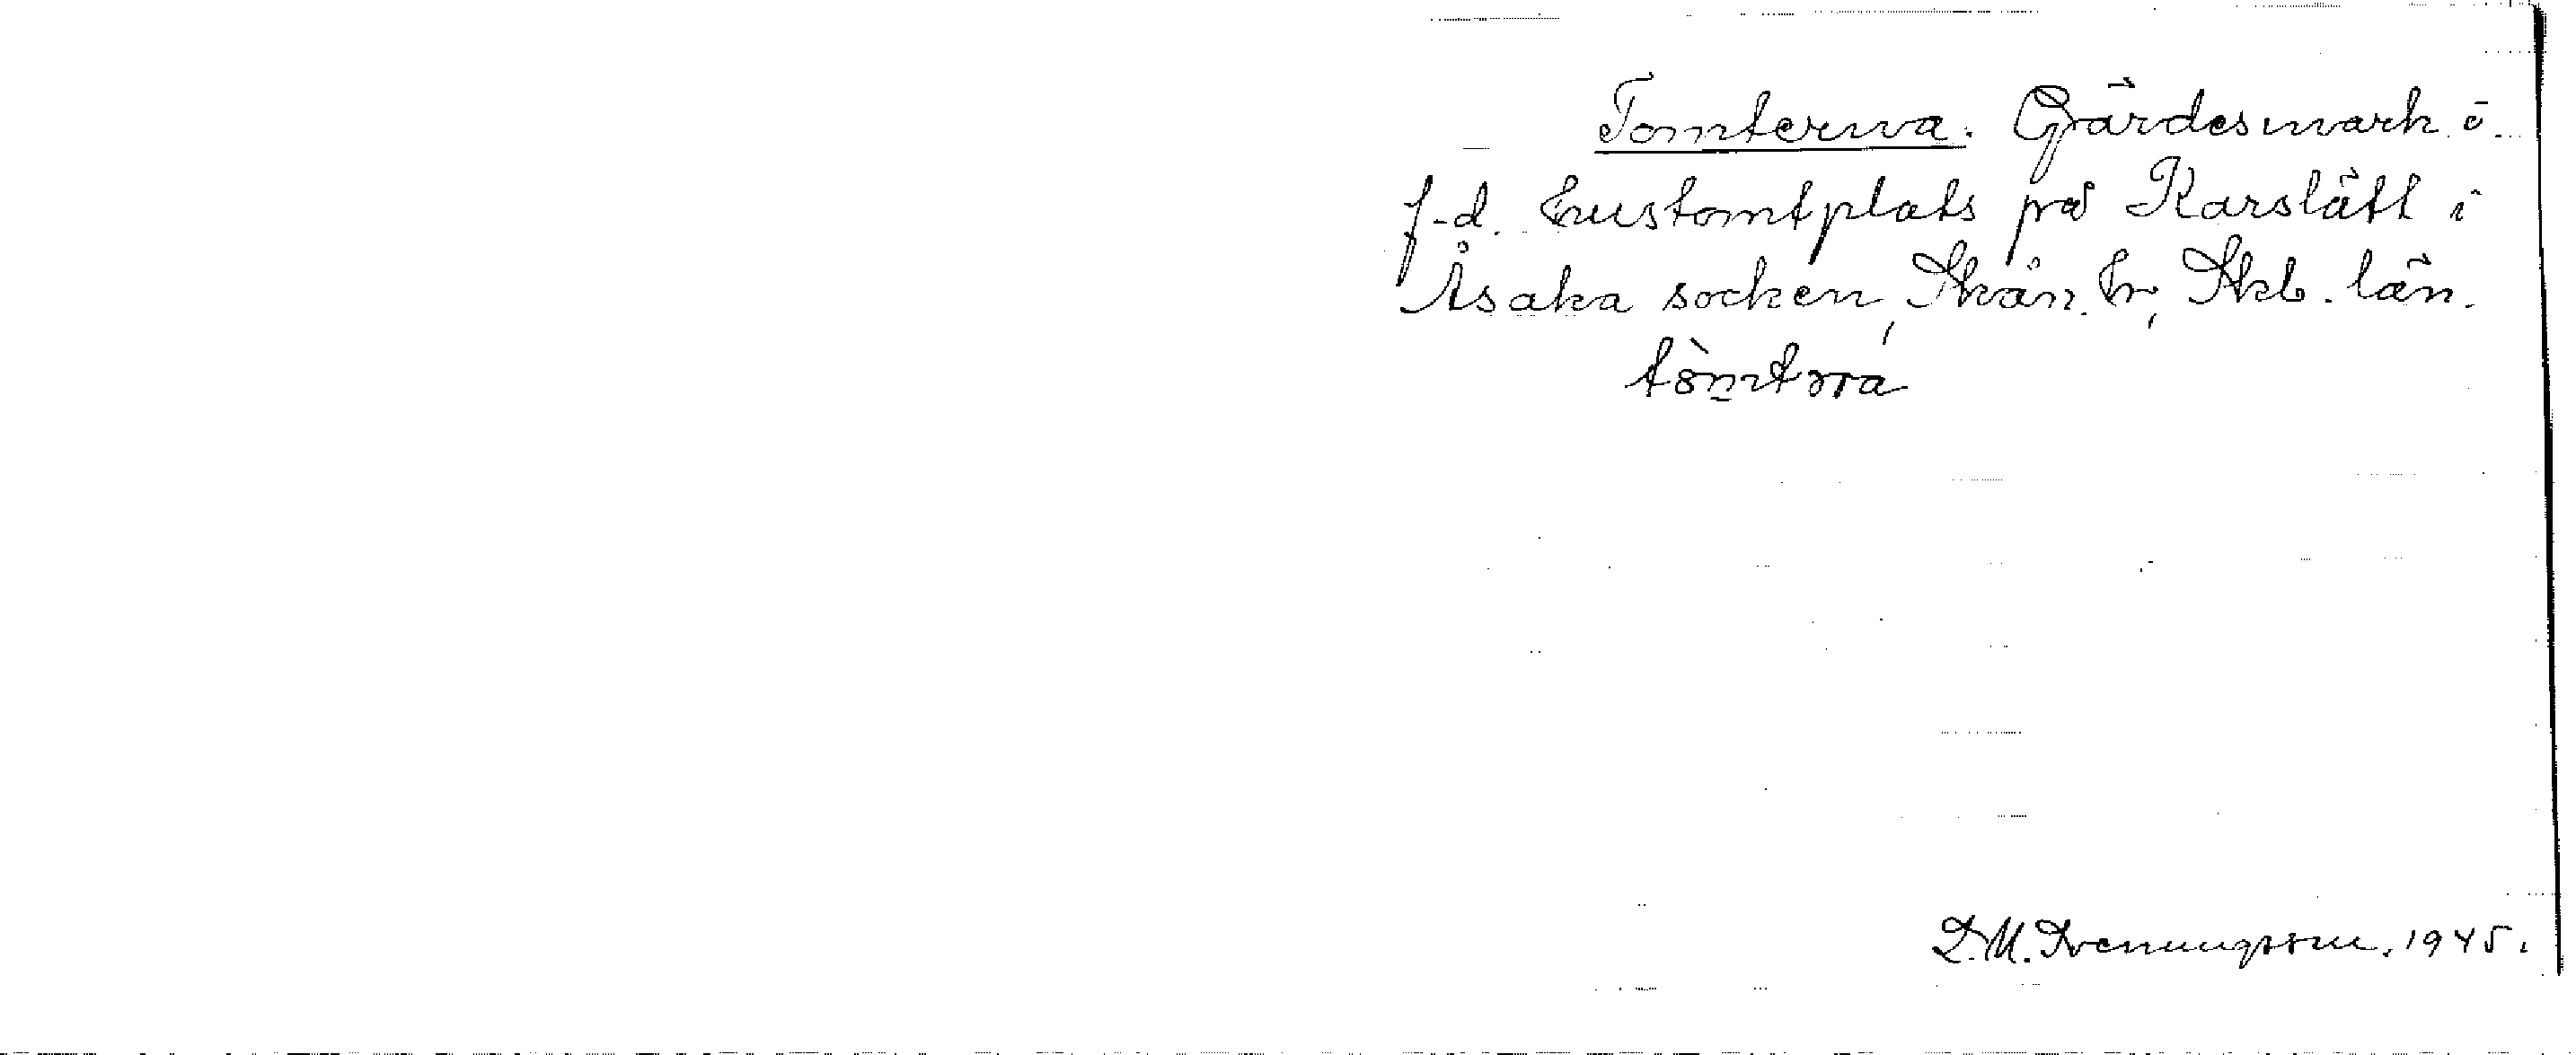 Tomterna. Gärdesmark i
f.d. hustomtplats på Karslätt i
Åsaka socken, Skån. hr, Skb. län.
tòmtɔra
D.M. Svenungsson. 1945.